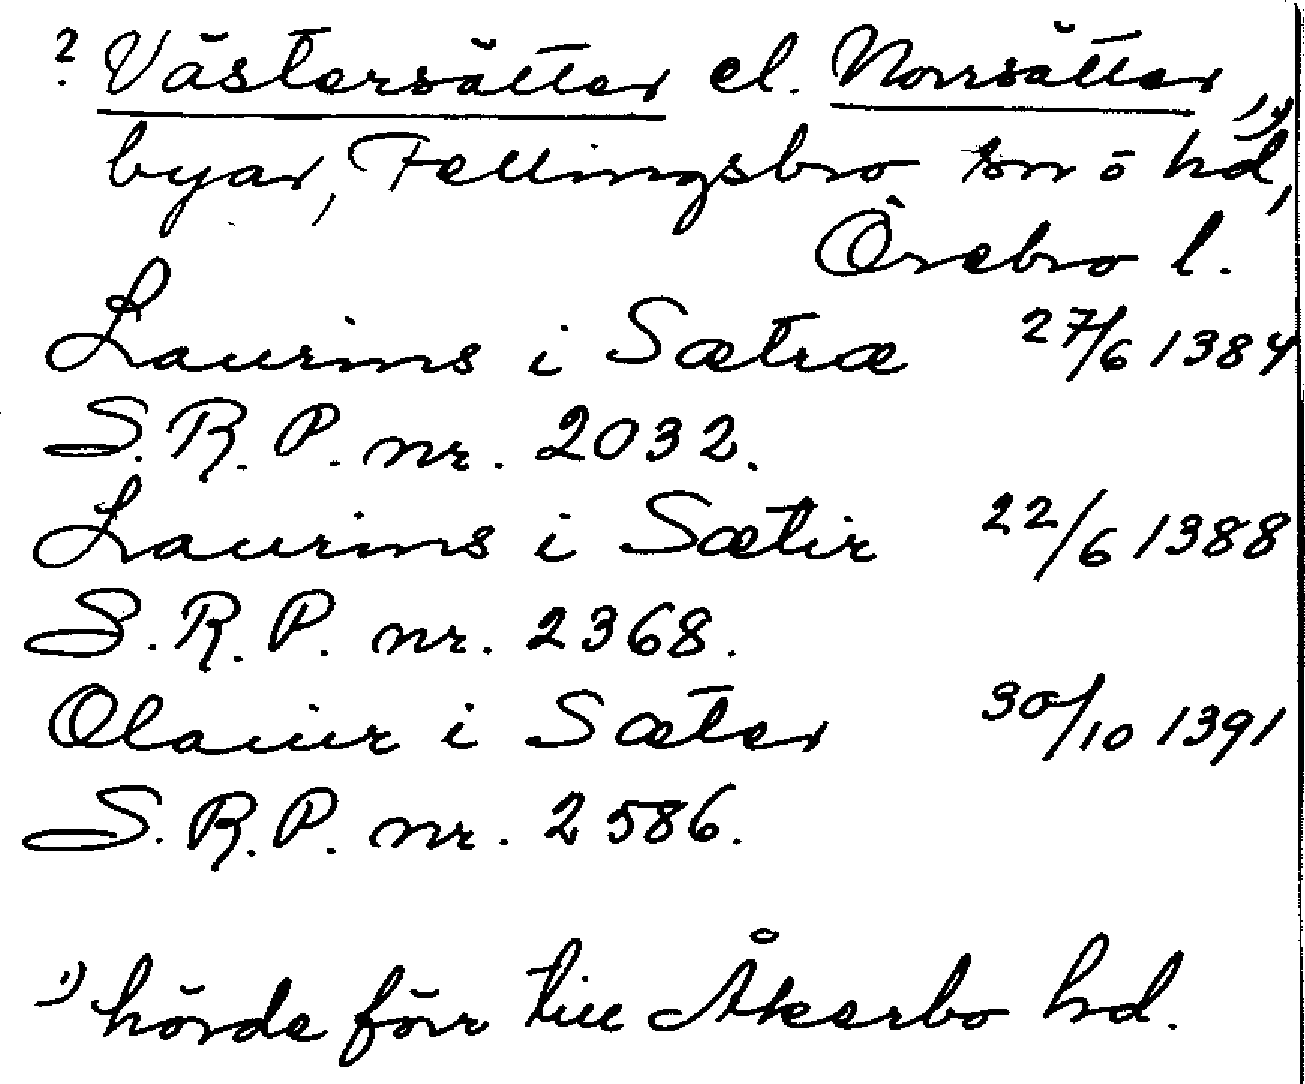 ? Västersätter el. Norrsätter 1)
byar, Fellingsbro sn o hd,
Örebro l.
Laurins i Sætræ 27/6 1384
S.R.P. nr. 2032.
Laurins i Sætir 22/6 1388
S.R.P. nr. 2368.
Olauir i Sæter 30/10 1391
S.R.P. nr. 2586.
1) hörde förr till Åkerbo hd.